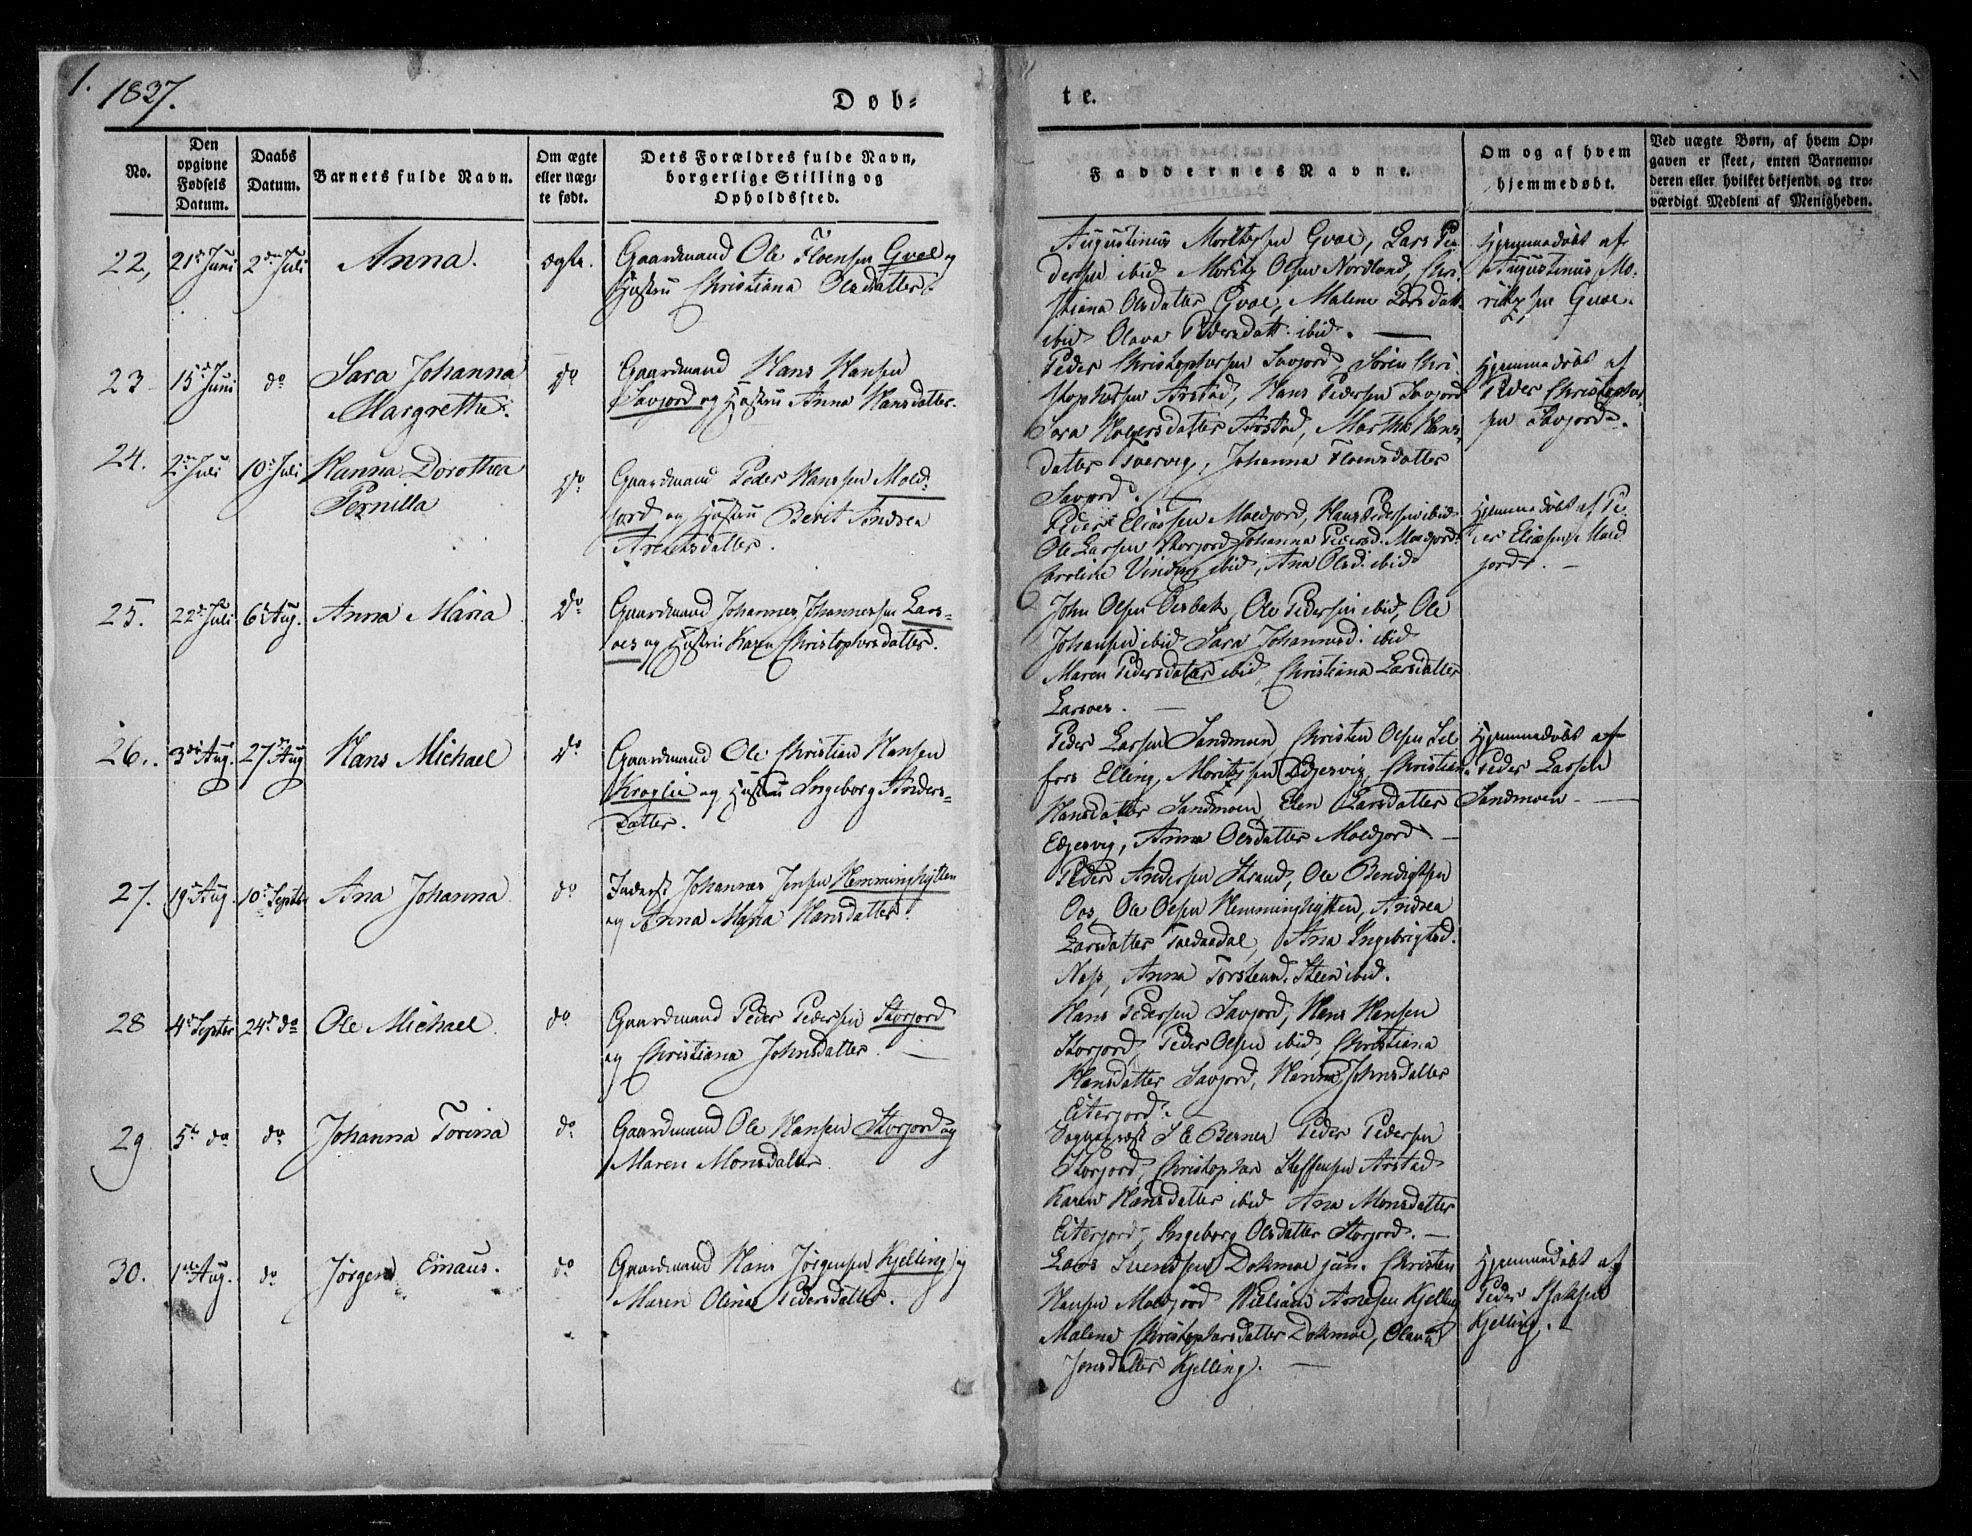 1.
1837.
Døb=
te.
No.
Den opgivne Fødsels Datum.
Daabs Datum.
Barnets fulde Navn.
Om ægte eller uægte født.
Dets Forældres fulde Navn, borgerlige Stilling og Opholdssted.
Faddernes Navne.
Om og af hvem hjemmedøbt.
Ved uægte Børn, af hvem Opgaven er skeet, enten Barnemoderen eller hvilket bekjendt og troværdigt Medlem af Menigheden.
22,
21de Juni
2den Juli
Anna.
ægte.
Gaardmand Ole Floensen Gvæl og
Hustru Christiana Olsdatter.
Augustinus Moritzsen Gvæl, Lars Pe
dersen ibid Moritz Olsen Nordland, Chri
stiana Olsdatter Gvæl, Malene Larsdatt
ibid Olava Pedersdatt. ibid.
Hjemmedøbt af
Augustinus Mo.
ritzsen Gvæl.
23
15de Juni
do
Sara Johanna
Margrethe.
Do
Gaardmand Hans Hansen
Savjord og Hustru Anna Hansdatter.
Peder Christophersen Savjord, Søren Chri
stophersen Arstad, Hans Pedersen Savjord
Sara Holgersdatter Arstad, Martha Hans
datter Toervig, Johanna Floensdatter
Savjord.
Hjemmedøbt af
Peder Christopher
sen Savjord.
24.
2den Juli
10de Juli
Hanna Dorothea
Pernilla
Do
Gaardmand Peder Hanssen Mold=
jord og Hustru Berit Andrea
Arentsdatter.
Peder Eliassen Moldjord, Hans Pedersen ibid
Ole Larsen Storjord Johanna Pedersd. Moldjord
Caroline Vinding ibid, Ana Olsd. ibid
Hjemmedøbt af Pe
der Eliassen Mold
jord.
25.
22de Juli
6te Aug.
Anna Maria
Do
Gaardmand Johannes Johannessen Lars=
oes og Hustru Karen Christophersdatter.
John Olsen Eesbak, Ole Pedersen ibid, Ole
Johansen ibid Sara Johannesd. ibid
Maren Pedersdatter ibid, Christiana Larsdatter
Larsoes.
26.
3die Aug.
27de Aug
Hans Michael
Do
Gaardmand Ole Christian Hansen
Kroglie og Hustru Ingeborg Anders=
datter.
Peder Larsen Sandmoen, Christen Olsen Sel
fors Elling Moritzsen Edjervig, Christian.
Hansdatter Sandmoen, Elen Larsdatter
Edjervig, Anna Olsdatter Moldjord
Hjemmedøbt af
Peder Larsen
Sandmoen.
27.
19de Aug.
10de Septbr
Ana Johanna
do
Inderst Johannes Jensen Hemminghytten
og Anna Maria Hansdatter.
Peder Andersen Strand, Ole Bendigtsen
Oos, Ole Olsen Hemminghytten, Andrea
Larsdatter Toldaadal, Ana Ingebrigtsd.
Næs, Anna Torstensd. Steen ibid.
28
4de Septbr
24de do
Ole Michael
do
Gaardmand Peder Pedersen Storjord
og Christiana Johnsdatter.
Hans Pedersen Savjord, Hans Hansen
Storjord, Peder Olsen ibid, Christiana
Hansdatter Savjord, Hanna Johnsdatter
Eiterjord.
29
5te do
do
Johanna Torina
do
Gaardmand Ole Hansen Storjord og
Maren Monsdatter.
Sognepræst Berner Peder Pedersen
Storjord, Christopher Steffensen Arstad
Karen Hansdatter ibid Ana Monsdatter
Eiterjord, Ingeborg Olsdatter Storjord.
30.
1ste Aug.
do
Jørgen Emaus.
do
Gaardmand Hans Jørgensen Kjelling og
Maren Olina Pedersdatter.
Lars Svendsen Dokmoe jun. Christen
Hansen Moldjord William Arnesen Kjelling
Malena Christophersdatter Dokmoe, Olava
Jensdatter Kjelling.
Hjemmedøbt af
Peder Isaksen
Kjelling.